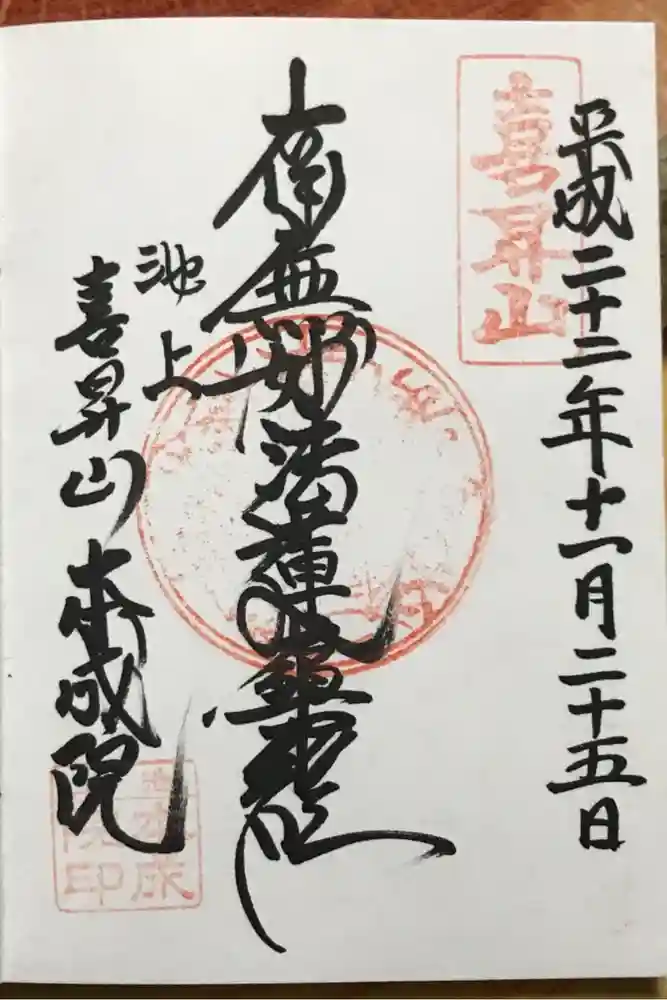 平成二十二年十一月二十五日
喜昇山
南無妙法蓮華經
池上
喜昇山 本成院
本成
院印